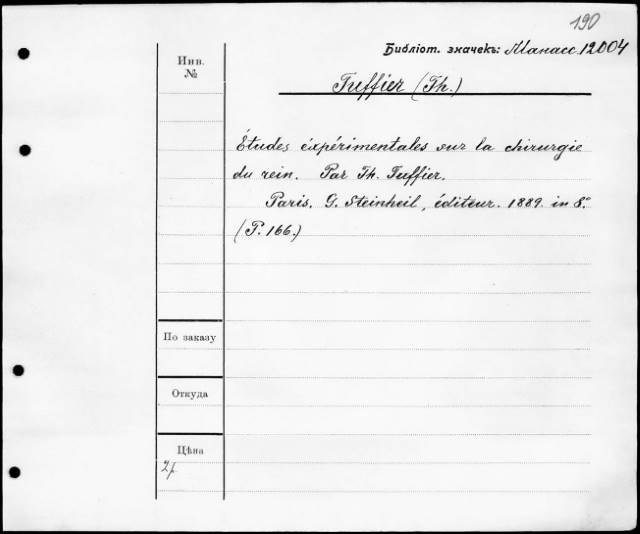 190
Библіот. значекъ: Манасс. 12004
Инв.
№
Tuffier (Th.)
Études éxpérimentales sur la chirurgie
du rein. Par Th. Tuffier.
Paris. G. Steinheil, éditeur. 1889. in 8º
(P. 166.)
По заказу
Откуда
Цѣна